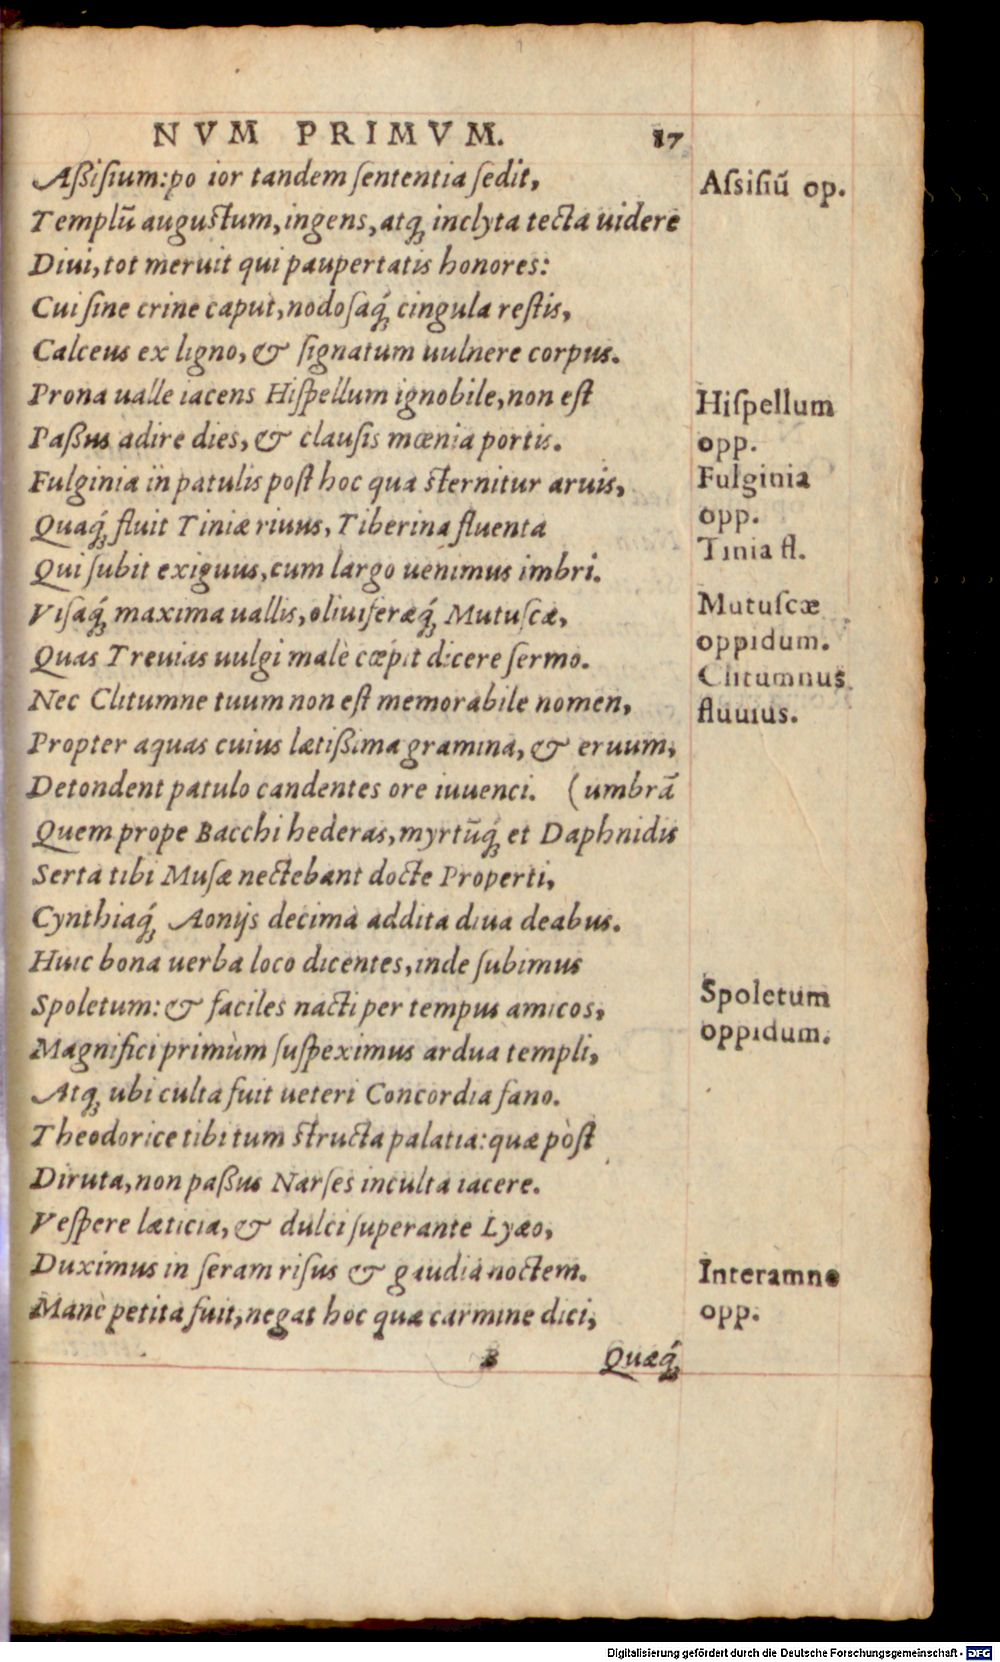 NVM PRIMVM. 87
Aßiſium: po ior tandem ſententia ſedit,
Templū auguſtum, ingens, atq́; inclyta tecta uidere
Diui, tot meruit qui paupertatis honores:
Cui ſine crine caput, nodoſaq́; cingula reſtis,
Calceus ex ligno, & ſignatum uulnere corpus.
Prona ualle iacens Hiſpellum ignobile, non eſt
Paßus adire dies, & clauſis mœnia portis.
Fulginia in patulis poſt hoc qua ſternitur aruis,
Quaq́; fluit Tiniæ riuus, Tiberina fluenta
Qui ſubit exiguus, cum largo uenimus imbri.
Viſaq́; maxima uallis, oliuiferæq́; Mutuſcæ,
Quas Treuias uulgi malè cœpit dicere ſermo.
Nec Clitumne tuum non eſt memorabile nomen,
Propter aquas cuius lætißima gramina, & eruum,
Detondent patulo candentes ore iuuenci. (umbrā
Quem prope Bacchi hederas, myrtūq́; et Daphnidis
Serta tibi Muſæ nectebant docte Properti,
Cynthiaq́; Aonijs decima addita diua deabus.
Huic bona uerba loco dicentes, inde ſubimus
Spoletum: & faciles nacti per tempus amicos,
Magnifici primùm ſuſpeximus ardua templi,
Atq; ubi culta fuit ueteri Concordia fano.
Theodorice tibi tum ſtructa palatia: quæ pòſt
Diruta, non paßus Narſes inculta iacere.
Veſpere læticia, & dulci ſuperante Lyæo,
Duximus in ſeram riſus & gaudia noctem.
Manè petita fuit, negat hoc quæ carmine dici,
B Quæq́;
Aſsiſiū op.
Hiſpellum
opp.
Fulginia
opp.
Tinia fl.
Mutuſcæ
oppidum.
Clitumnus
fluuius.
Spoletum
oppidum.
Interamne
opp.
Digitalisierung gefördert durch die Deutsche Forschungsgemeinschaft - DFG